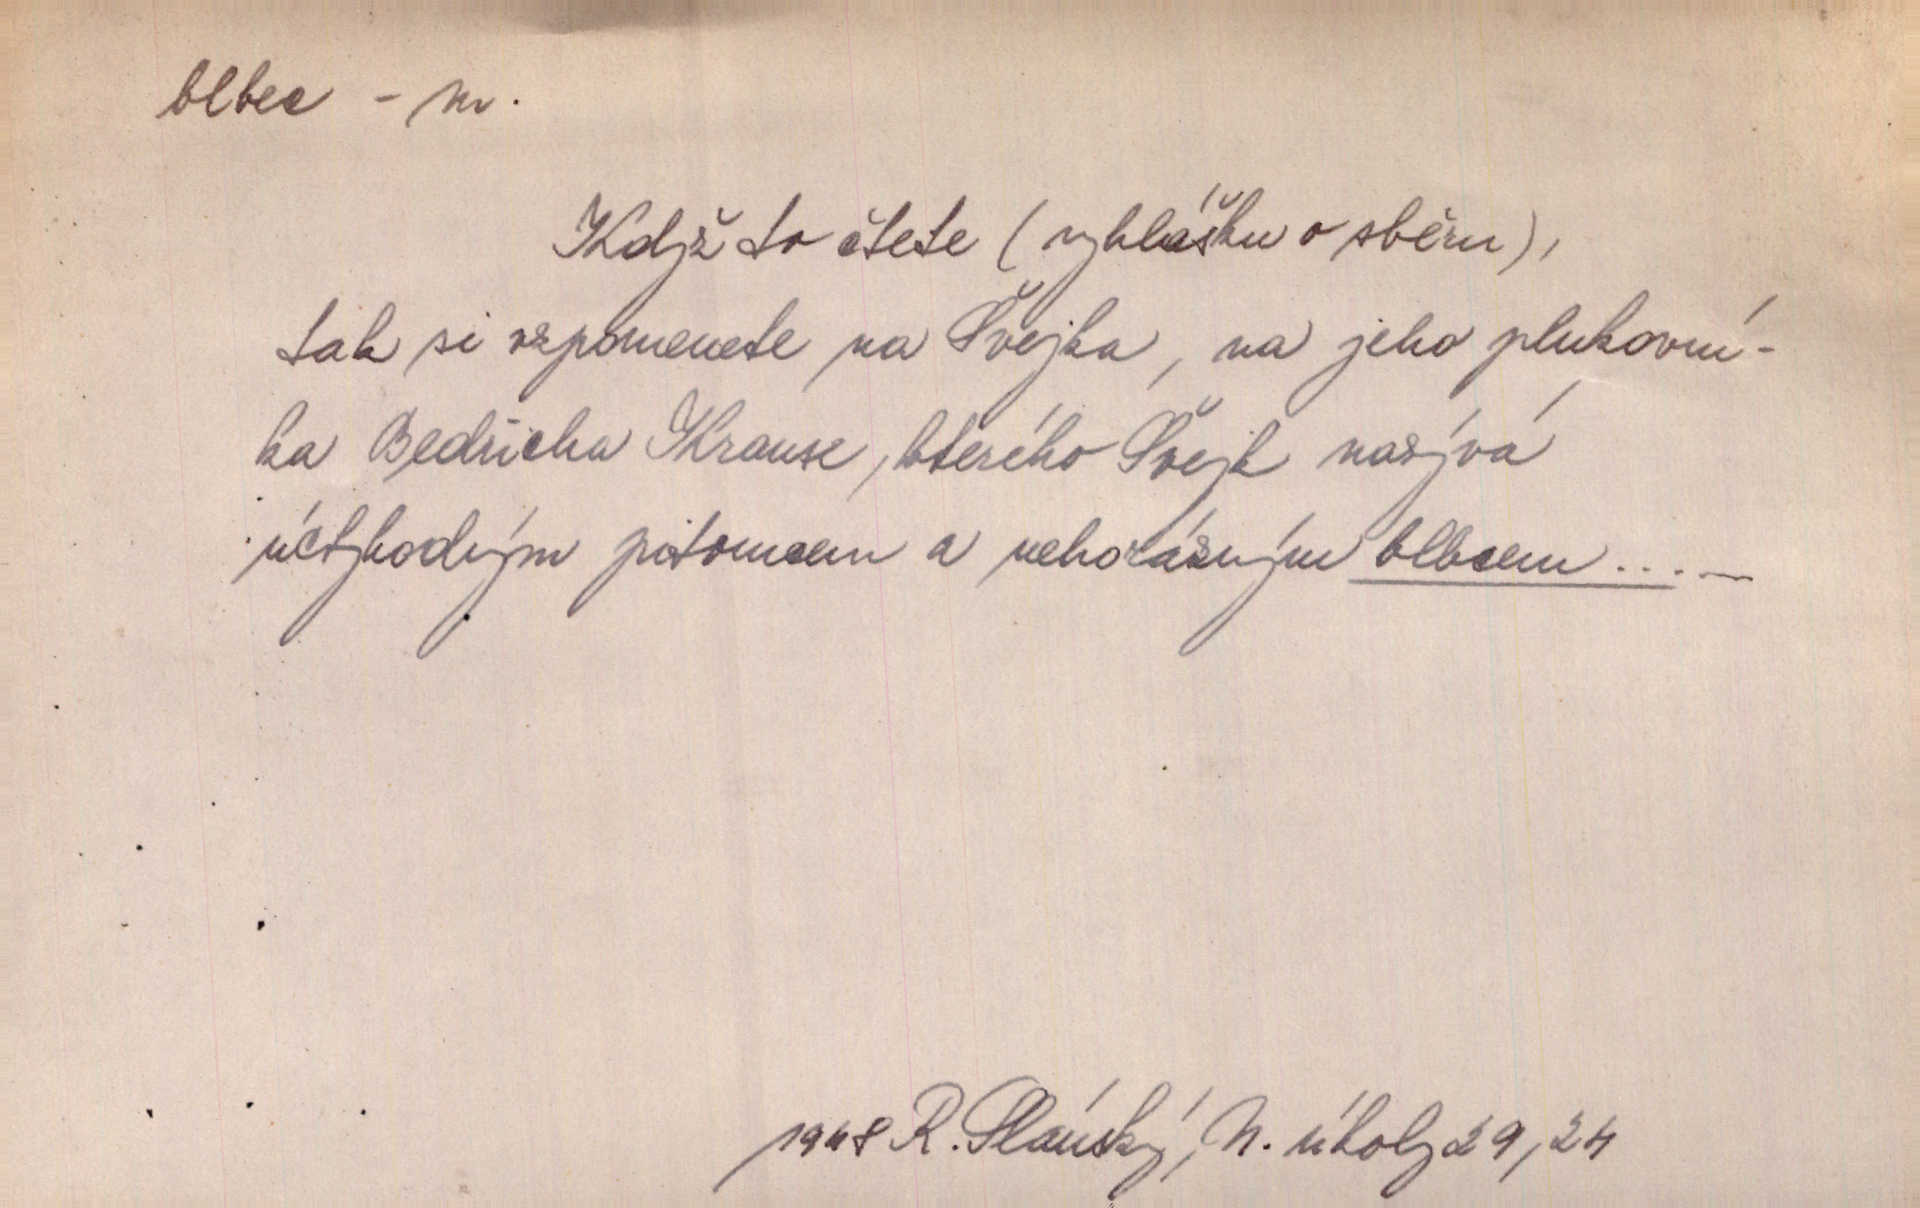 blbec - m.
Když to čtete (vyhlášku o sběru),
tak si vzpomenete na Švejka, na jeho plukovní-
ka Bedřicha Krause, kterého Švejk nazývá
úctyhodným pitomcem a nehorázným blbcem....—
1948 R. Slánský, N. úkoly 29, 24